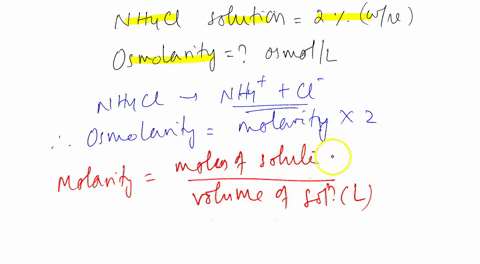 NH4Cl solution = 2 % (w/v)
Osmolarity = ? osmol/L
NH4Cl → NH4+ + Cl-
∴ Osmolarity = molarity × 2
Molarity = moles of solute
volume of sol? (L)